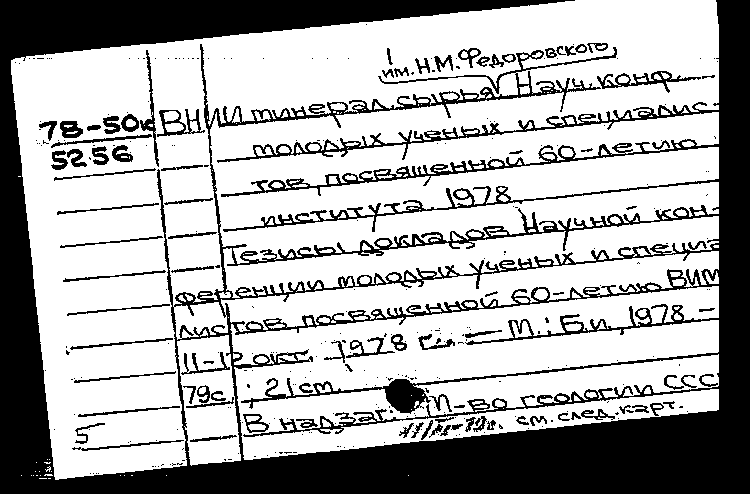 им. Н.М. Федоровского,
78-50к ВНИИ минерал. сырья. Науч. конф.
5256
молодых ученых и специалис-
тов, посвященной 60-летию
института. 1978.
Тезисы докладов Научной кон-
ференции молодых ученых и специа
листов, посвященной 60-летию ВИМ
11-12 окт. 1978 г. — М.: Б.и., 1978. –
79с. ; 21 см.
В надзаг.: М-во геологии ССС
см. след. карт.
5